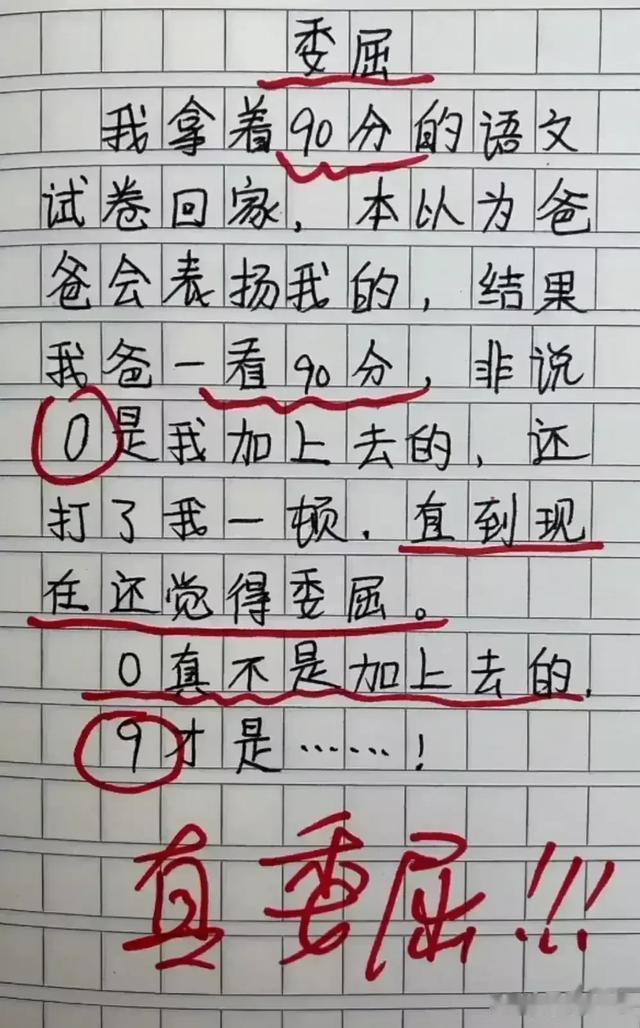 委屈
我拿着90分的语文
试卷回家，本以为爸
爸会表扬我的，结果
我爸一看90分，非说
0是我加上去的，还
打了我一顿．直到现
在还觉得委屈。
0真不是加上去的．
9才是……！
真委屈!!!